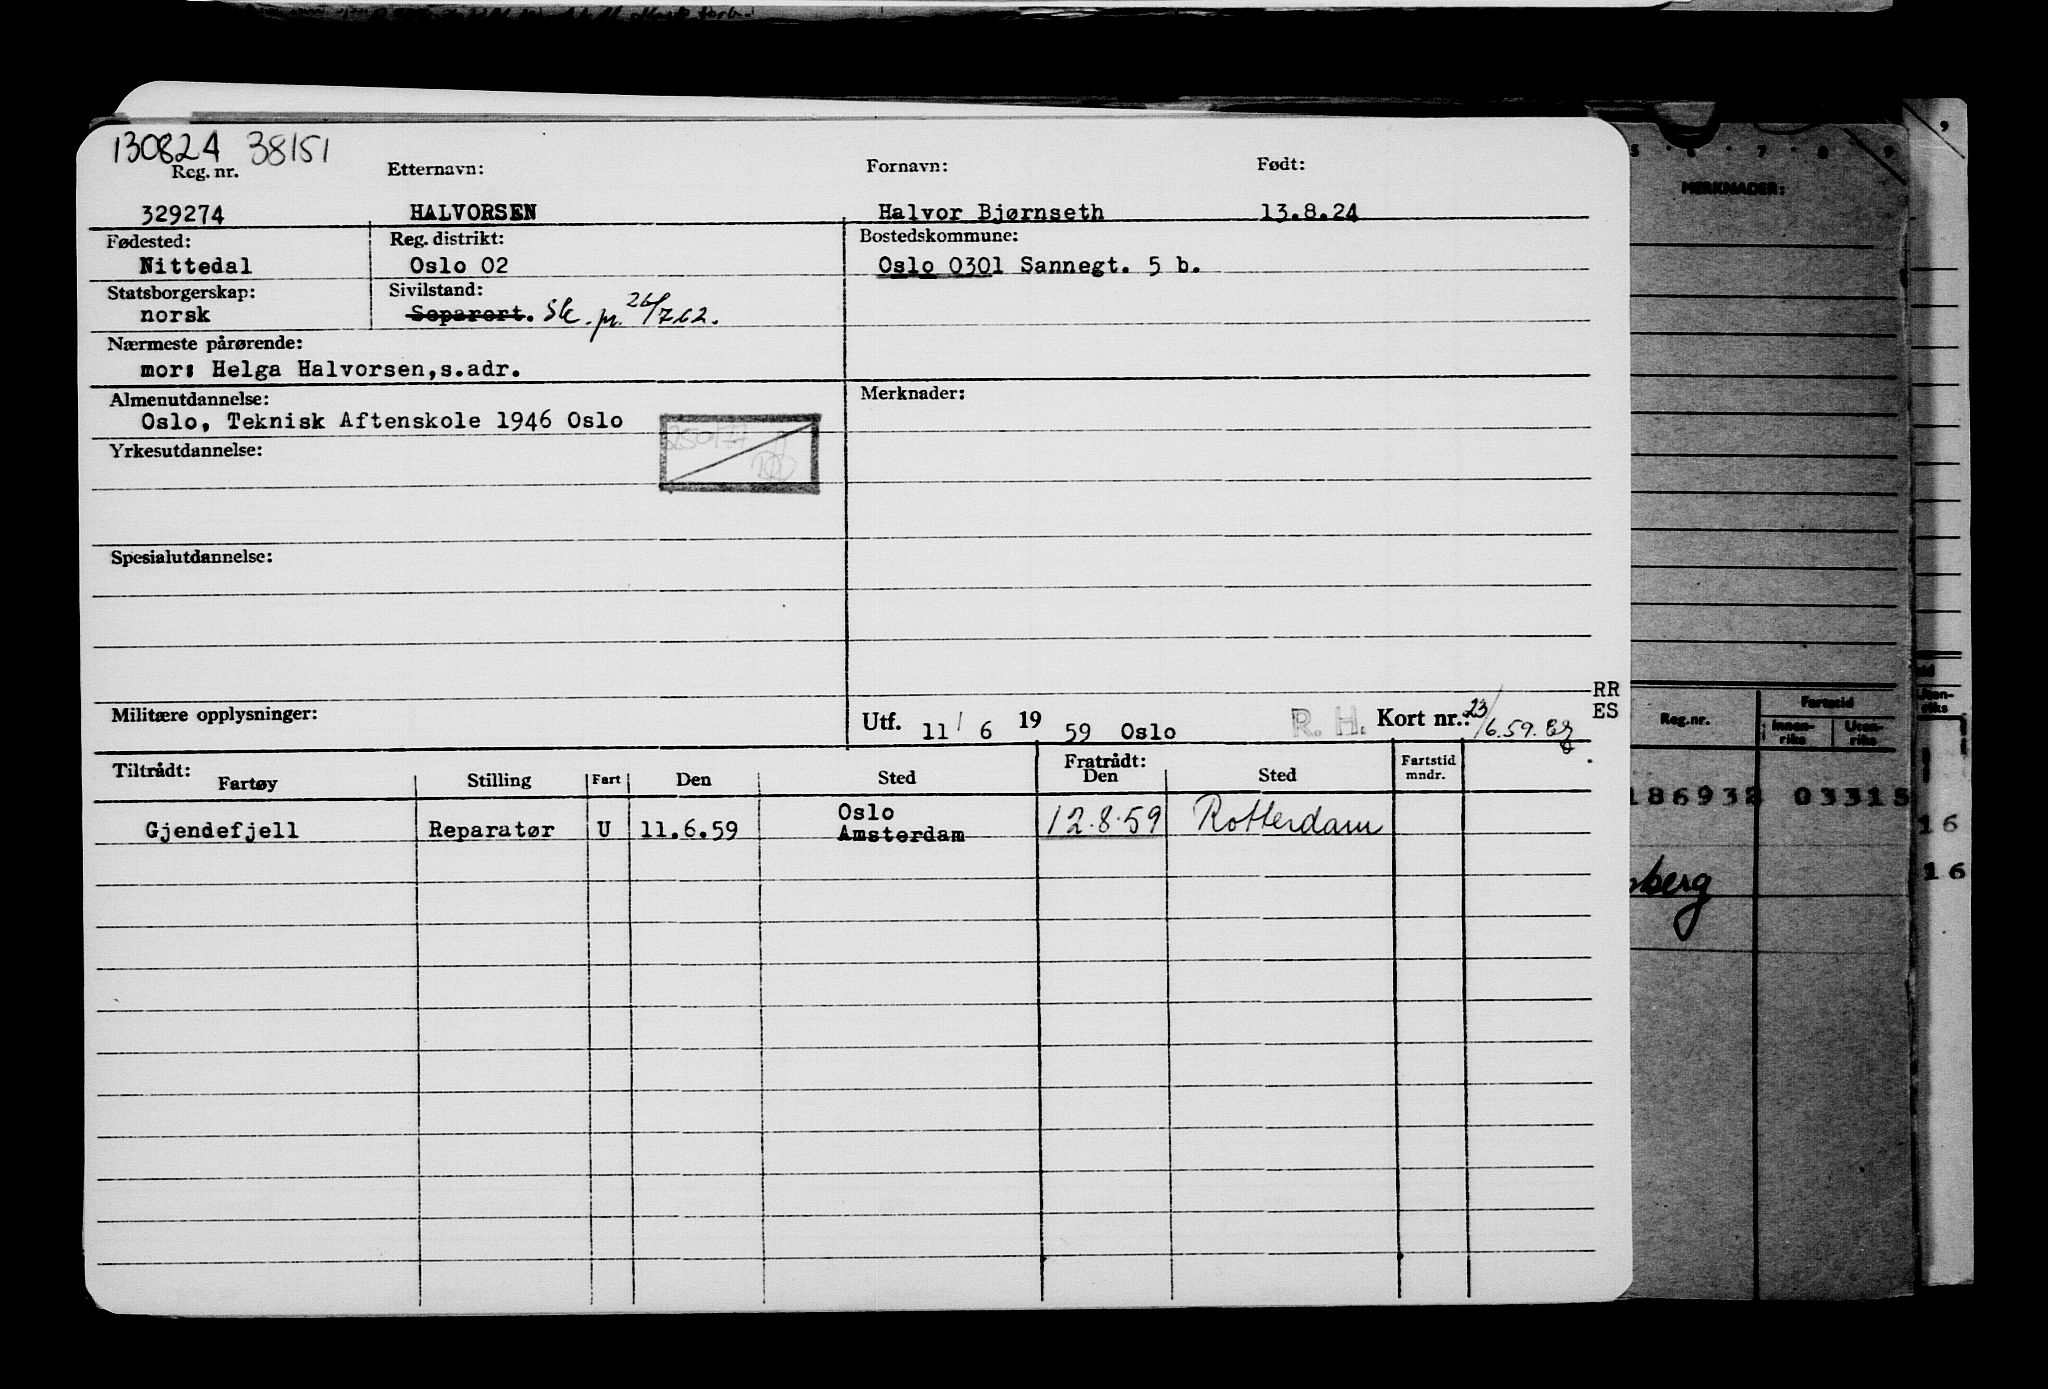 130824 38151
Reg. nr. Etternavn: Fornavn: Født:
329274 HALVORSEN Halvor Bjørnseth 13.8.24
Fødested: Reg. distrikt: Bostedskommune:
Nittedal Oslo 02 Oslo 0301 Sannegt. 5 b.
Statsborgerskap: Sivilstand:
norsk Separert. Sk. pr. 26/7 62.
Nærmeste pårørende:
mor: Helga Halvorsen,s.adr.
Almenutdannelse: Merknader:
Oslo, Teknisk Aftenskole 1946 Oslo
Yrkesutdannelse:
Spesialutdannelse:
RR
Militære opplysninger: Utf. 11/ 6 19 59 Oslo R. H. Kort nr.: 23/6.59. ES
Tiltrådt: Fratrådt: Fartstid
Fartøy Stilling Fart Den Sted Den Sted mndr.
Oslo
Gjendefjell Reparatør U 11.6.59 Amsterdam 12.8.59 Rotterdam
5 · 6 · 7 · 8 · 9
MERKNADER:
Fartstid
Reg.nr. Innen-riks Uten-riks
186932 03315
berg
9
Uten-
riks
16
16